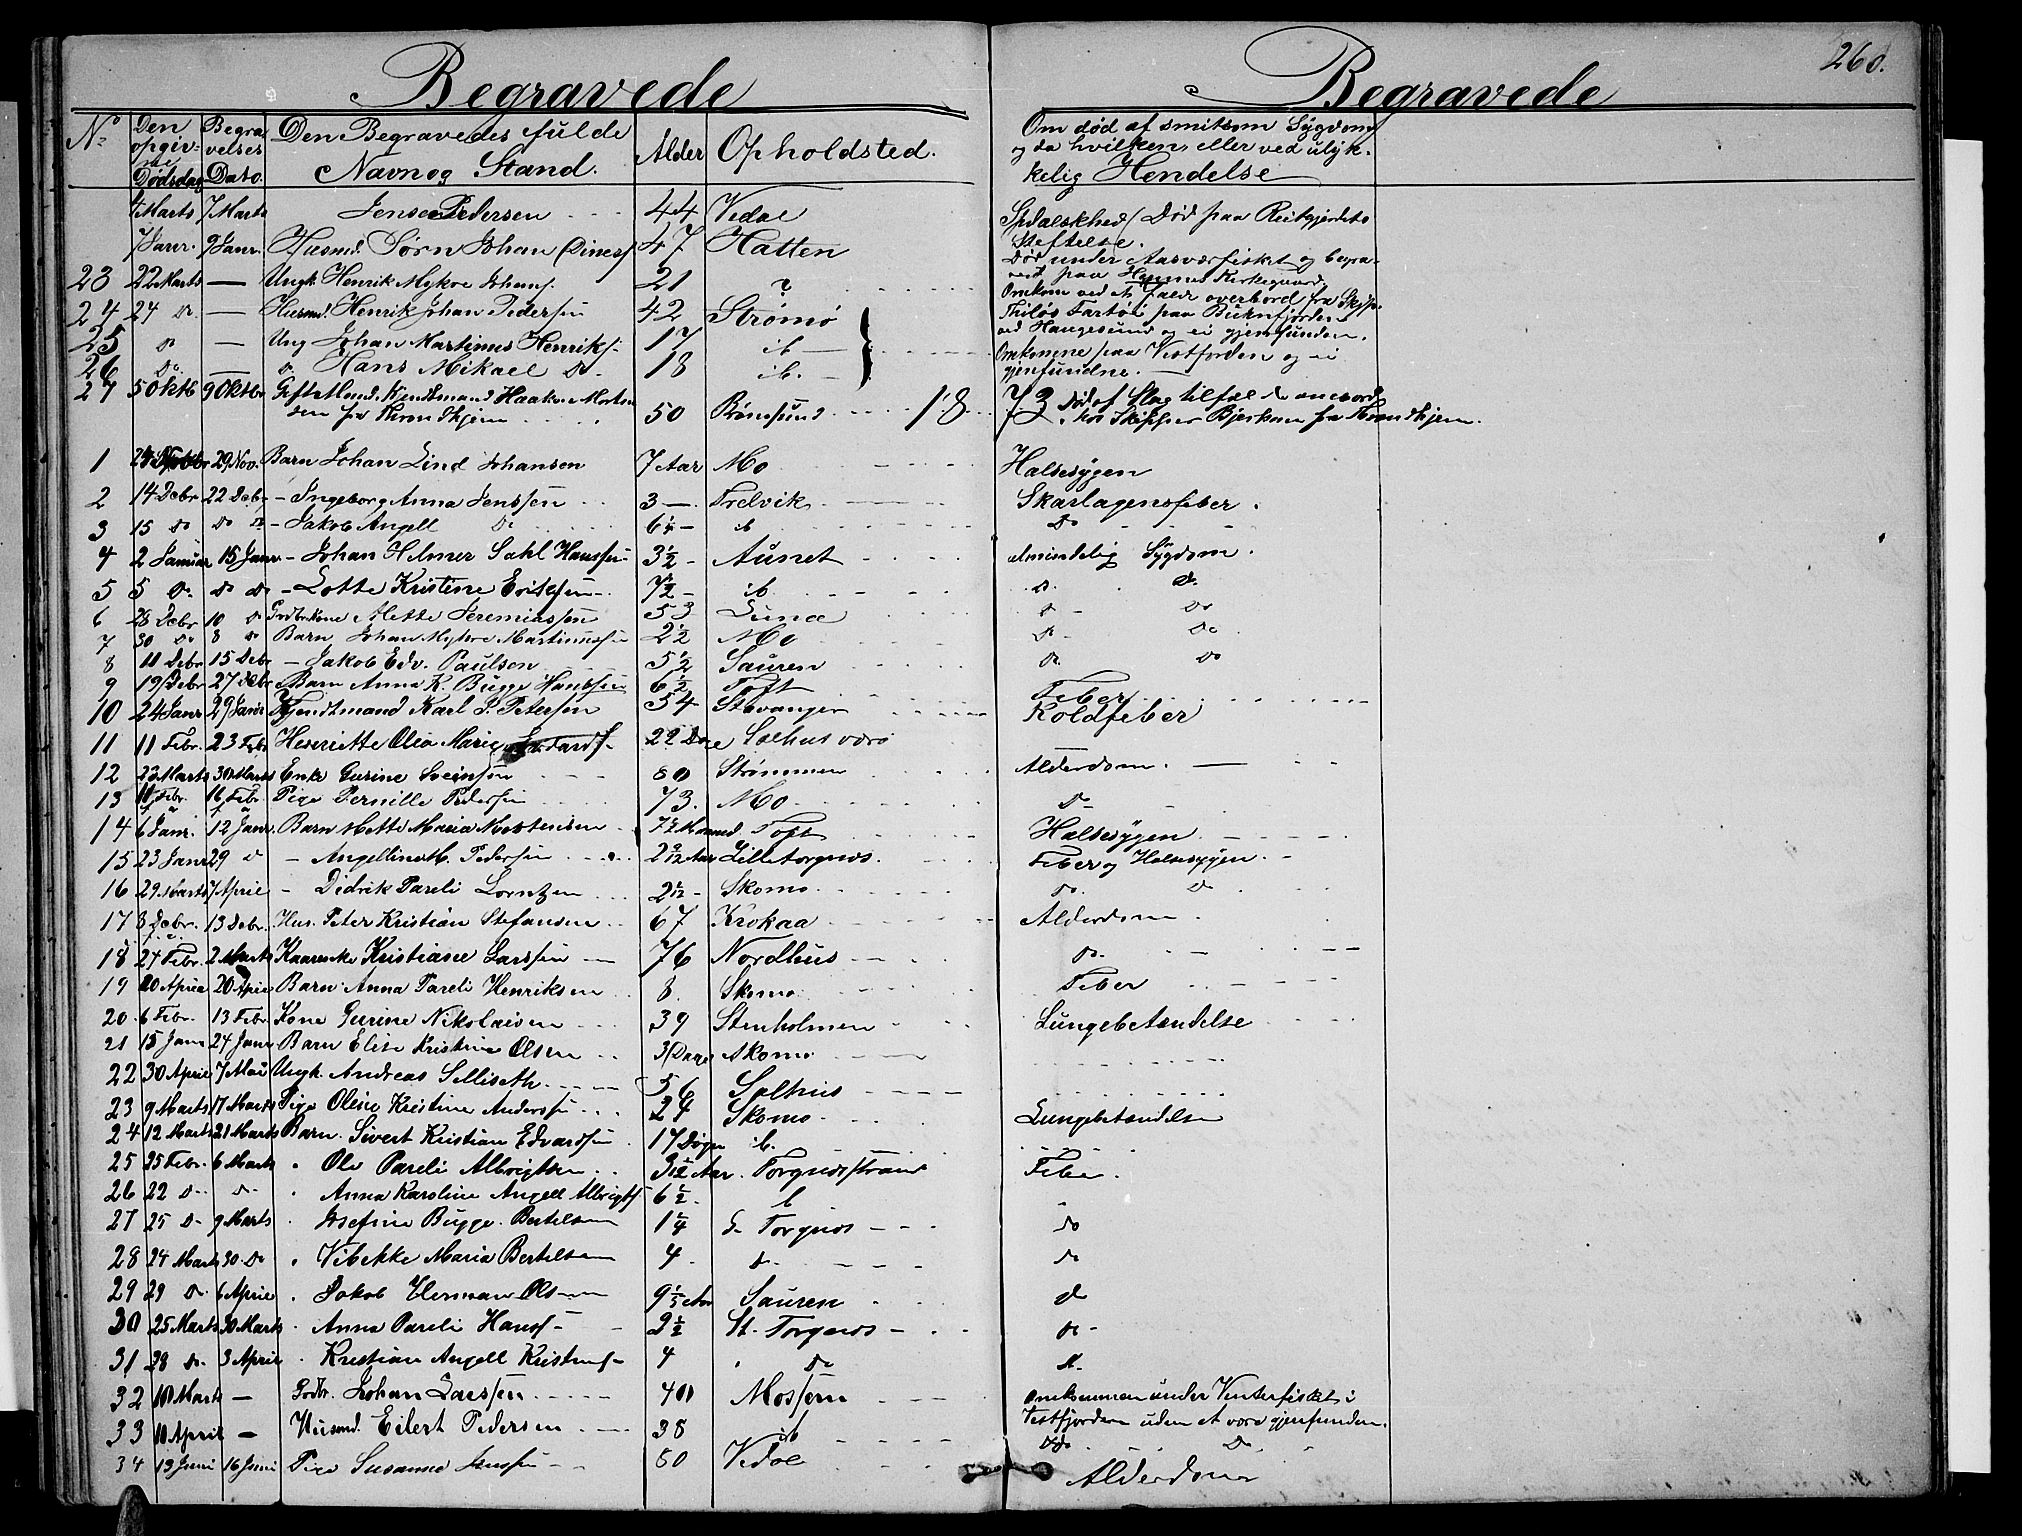 260.
Begravede Begravede
No Den opgivne Dødsdag Begravelses Dato. Den Begravedes fulde Navn og Stand. Alder Opholdsted. Om død af smitsom Sygdom og da hvilken, eller ved ulykkelig Hendelse
4 Marts 7 Marts Jens Pedersen 44 Vedal Spedalskhed (Død paa Reitgjerdets Stiftelse.
7 Janr. 9 Janr. Husmd. Sørn Johan (Dines) 47 Hatten Død under Aasværfisket og begravet paa Kirkegaard.
23 22 Marts — Ungk. Henrik Mykre Johans. 21 ? Omkom ved et Fald overbord fra Skip.
24 24 Do — Husmd. Henrik Johan Pedersen 42 Strømø Fartøi paa Buknfjorden ved Haugesund og ei gjenfunden.
25 Do — Ung Johan Martinus Henriks. 17 ib — Omkomne paa Vestfjorden og ei
26 Do. — Do. Hans Mikael Do. 18 ib. — gjenfundne. —
27 5 Oktb 9 Oktbr Gift Kjendtmand Haakon Morten
sen fra Thronthjem 50 Rønsund 18 73 Død af Slagtilfælde ombord
hos Skipper Bjerkan fra Throndhjem.
1 29 Nov. Barn Johan Lind Johansen 7 Aar Mo Halssygen
2 14 Debr 22 Debr - Ingeborg Anna Jenssen 3 — Trelvik Skarlagensfeber.
3 15 Do Do Do - Jakob Angell Do 6 ib Do
4 2 Januar 15 Janr - Johan Helmer Sahl Hanssen 3½ - Aunet Almindelig Sygdom.
5 5 Do. Do Do - Lotte Kristine Eriksen 7½ - ib. Do. Do.
6 28 Debr 10 Do Grdbr.kone Mette Jeremiassen 53 Lund Do - Do
7 30 Do 8 Do Barn Johan Mykre Martinussen 2½ Mo Do - Do
8 11 Debr 15 Debr - Jakob Edv. Paulsen 5½ Sauren Do. Do
9 19 Debr 27 Debr Barn Anna K. Bugge Hanssen 6½ Toft Feber
10 24 Janr 29 Janr Kjendtmand Karl P. Petersen 54 Stavanger Koldfeber
11 11 Febr. 23 Febr Henriette Olea Marie 22 Dage Salhus
12 23 Marts 30 Marts Enke Gurine Sveinsen 80 Strømmen Alderdom. —
13 11 Febr 16 Febr Pige Pernille Pedersen 73. Mo Do -
14 6 Janr. 12 Janr. Barn Mette Maria Mortensen 7½ Maaned. Toft Halssygen
15 23 Janr 29 Do - Angelline M. Pedersen 2 9/12 Aar Lille Torgnes. Feber og Halssygen.
16 29 Marts 7 April - Didrik Pareli Lorntzen 2 1/12 - Skomo. Do. Do
17 8 Debr. 13 Debr. Hus. Peter Kristian Stefansen 67 Krokaa Alderdom.
18 27 Febr. 2 Marts Kaarenke Kristiane Larssen 76 Nordhus Do.
19 20 April 20 April Barn Anna Pareli Henriksen 8. Skomo Feber
20. 6 Febr. 13 Febr. Kone Gurine Nikolaisen 39 Stenholmen Lungebetændelse
21 15 Janr 24 Janr Barn Elise Kristine Olsen 3 Dage Skomo
22 30 April 7 Mai Ungk. Andreas Selliseth. 56 Salhus
23 9 Marts 17 Marts Pige Oline Kristine Anderssen 24 Skomo Lungebetændelse
24 12 Marts 21 Marts Barn. Sivert Kristian Edvardsen 17 Døgn ib.
25 25 Febr. 6 Marts " Ole Pareli Albrigtsen 3½ Aar. Torgnesstrand Feber.
26 22 Do - Do - " Anna Karoline Angell Albrigts 6½ - ib "
27 25 Do - 9 Marts " Josefine Bugge Bertelsen 1¼ S. Torgnes Do
28 24 Marts 30. Do " Vibekke Maria Bertelsen 4 Do. Do
29 29 Do. 6 April " Jakob Herman Olsen 9½ Aar Sauren Do
30 25 Marts 30 Marts " Anna Pareli Hanss 2½ St. Torgnes - Do -
31 28 Do. 3 April " Kristian Angell Kristens - 4 " Do Do -
32 10 Marts — Grdbr. Johan Larssen 40 Mossem Omkommen under Vinterfisket i Vestfjorden uden at være gjenfunden.
33 10 April — Husmd. Eilert Pedersen 38 ib Do. Do
34 13 Juni 16 Juni Pige Susanna Jenssen 80 Vedal Alderdom